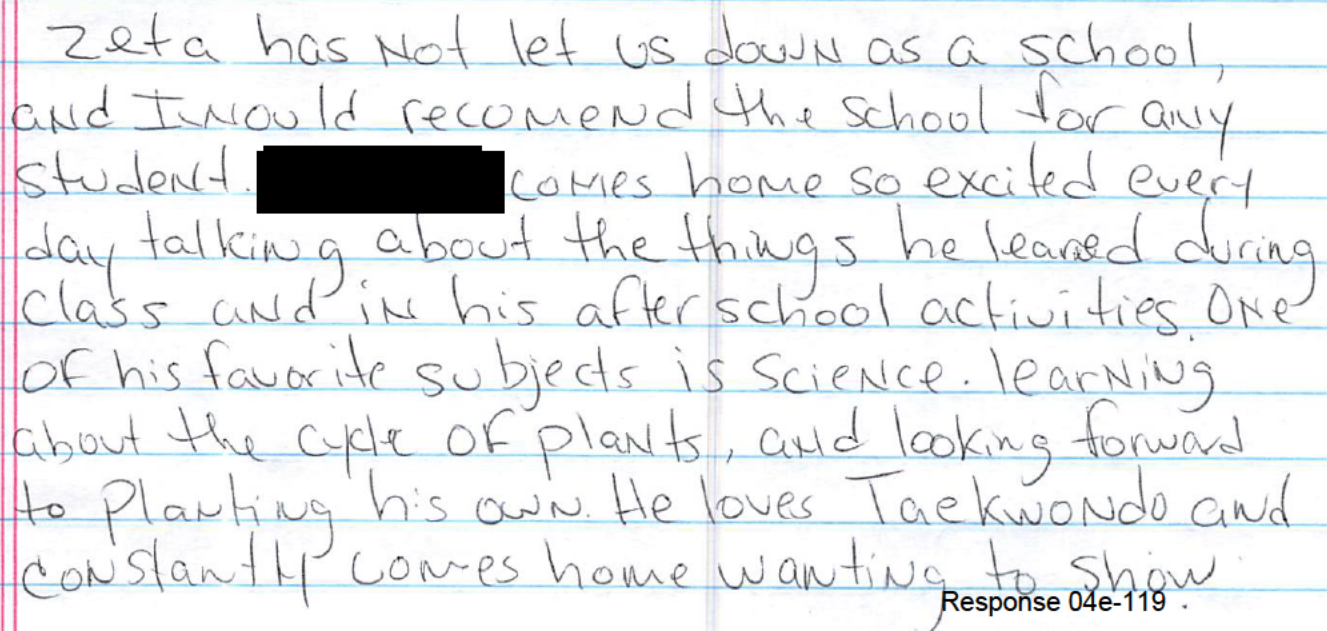 Zeta has Not let us down as a school,
and I would recomend the school for any
student. comes home so excited every
day talking about the things he leared during
class and in his after school activities. One
of his favorite subjects is science. learning
about the cycle of plants, and looking forward
to planting his own. He loves Taekwondo and
constantly comes home wanting to show
Response 04e-119